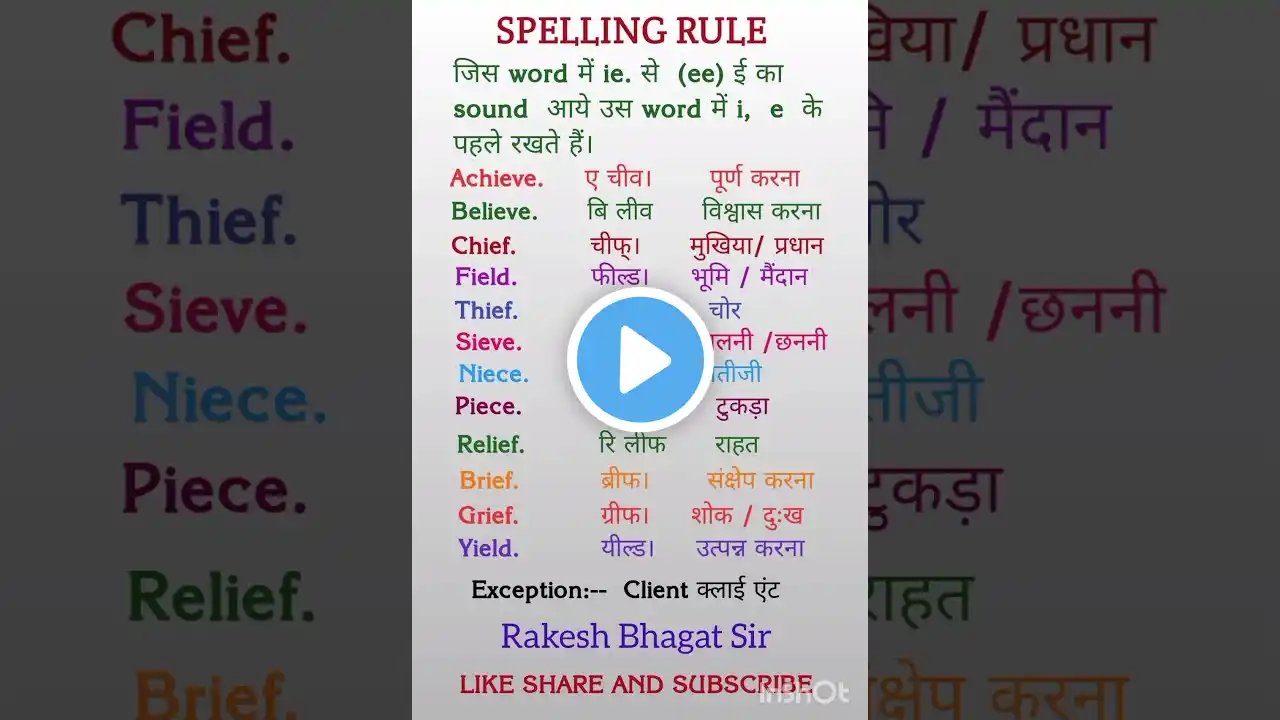 SPELLING RULE
जिस word में ie. से (ee) ई का
sound आये उस word में i, e के
पहले रखते हैं।
Achieve. ए चीव। पूर्ण करना
Believe. बि लीव विश्वास करना
Chief. चीफ्। मुखिया/ प्रधान
Field. फील्ड। भूमि / मैंदान
Thief. चोर
Sieve. /छननी
Niece.
Piece. टुकड़ा
Relief. रि लीफ राहत
Brief. ब्रीफ। संक्षेप करना
Grief. ग्रीफ। शोक / दुःख
Yield. यील्ड। उत्पन्न करना
Exception:-- Client क्लाई एंट
Rakesh Bhagat Sir
LIKE SHARE AND SUBSCRIBE
InShOt
Chief.
Field.
Thief.
Sieve.
Niece.
Piece.
Relief.
Brief.
/ प्रधान
/ मैंदान
/छननी
राहत
करना